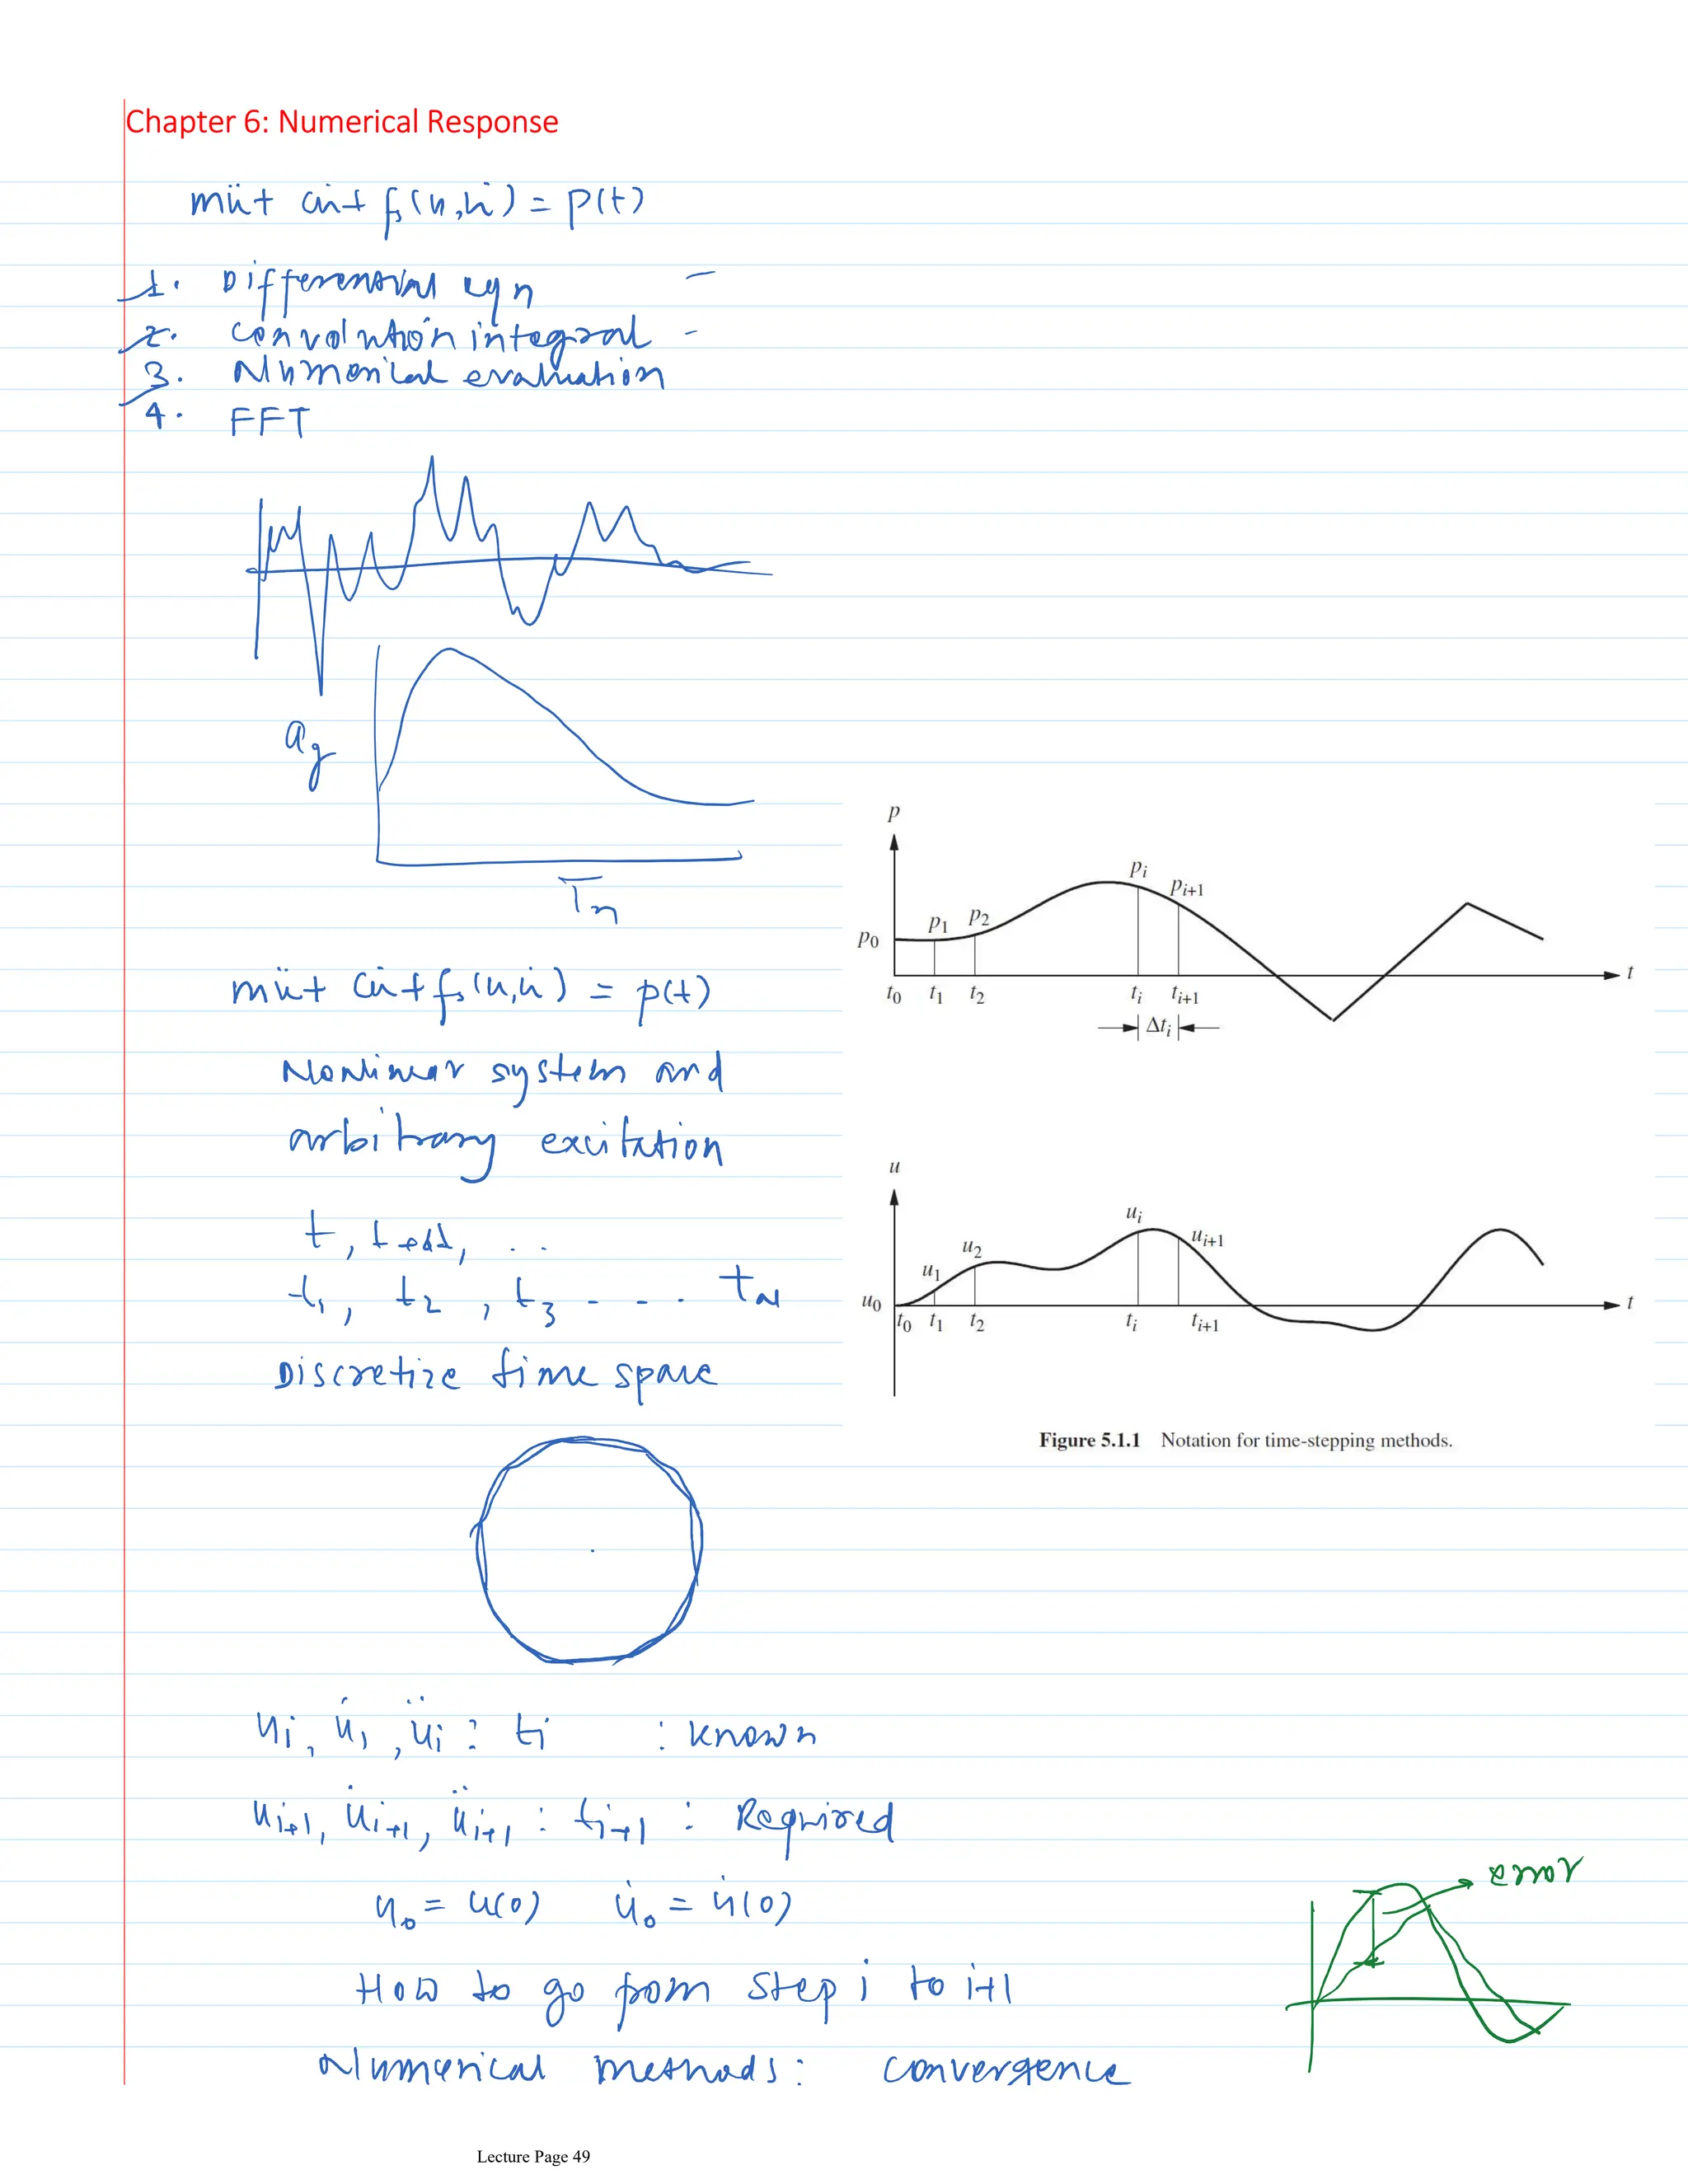 Chapter 6: Numerical Response
mü + cu̇ + fs(u, u̇) = p(t)
1. Differential eqn -
2. convolution integral -
3. Numerical evaluation
4. FFT
ag
Tn
mü + cu̇ + fs(u, u̇) = p(t)
Nonlinear system and
arbitrary excitation
t1, t2, t3 - - - . tN
Discretize time space
p
pi
pi+1
p1 p2
p0
t
t0 t1 t2 ti ti+1
Δti
u
ui
ui+1
u2
u1
u0
t
t0 t1 t2 ti ti+1
Figure 5.1.1 Notation for time-stepping methods.
ui, u̇i, üi : ti : known
ui+1, u̇i+1, üi+1 : ti+1 : Required
error
u0 = u(0) u̇0 = u̇(0)
How to go from step i to i+1
Numerical methods: convergence
Lecture Page 49